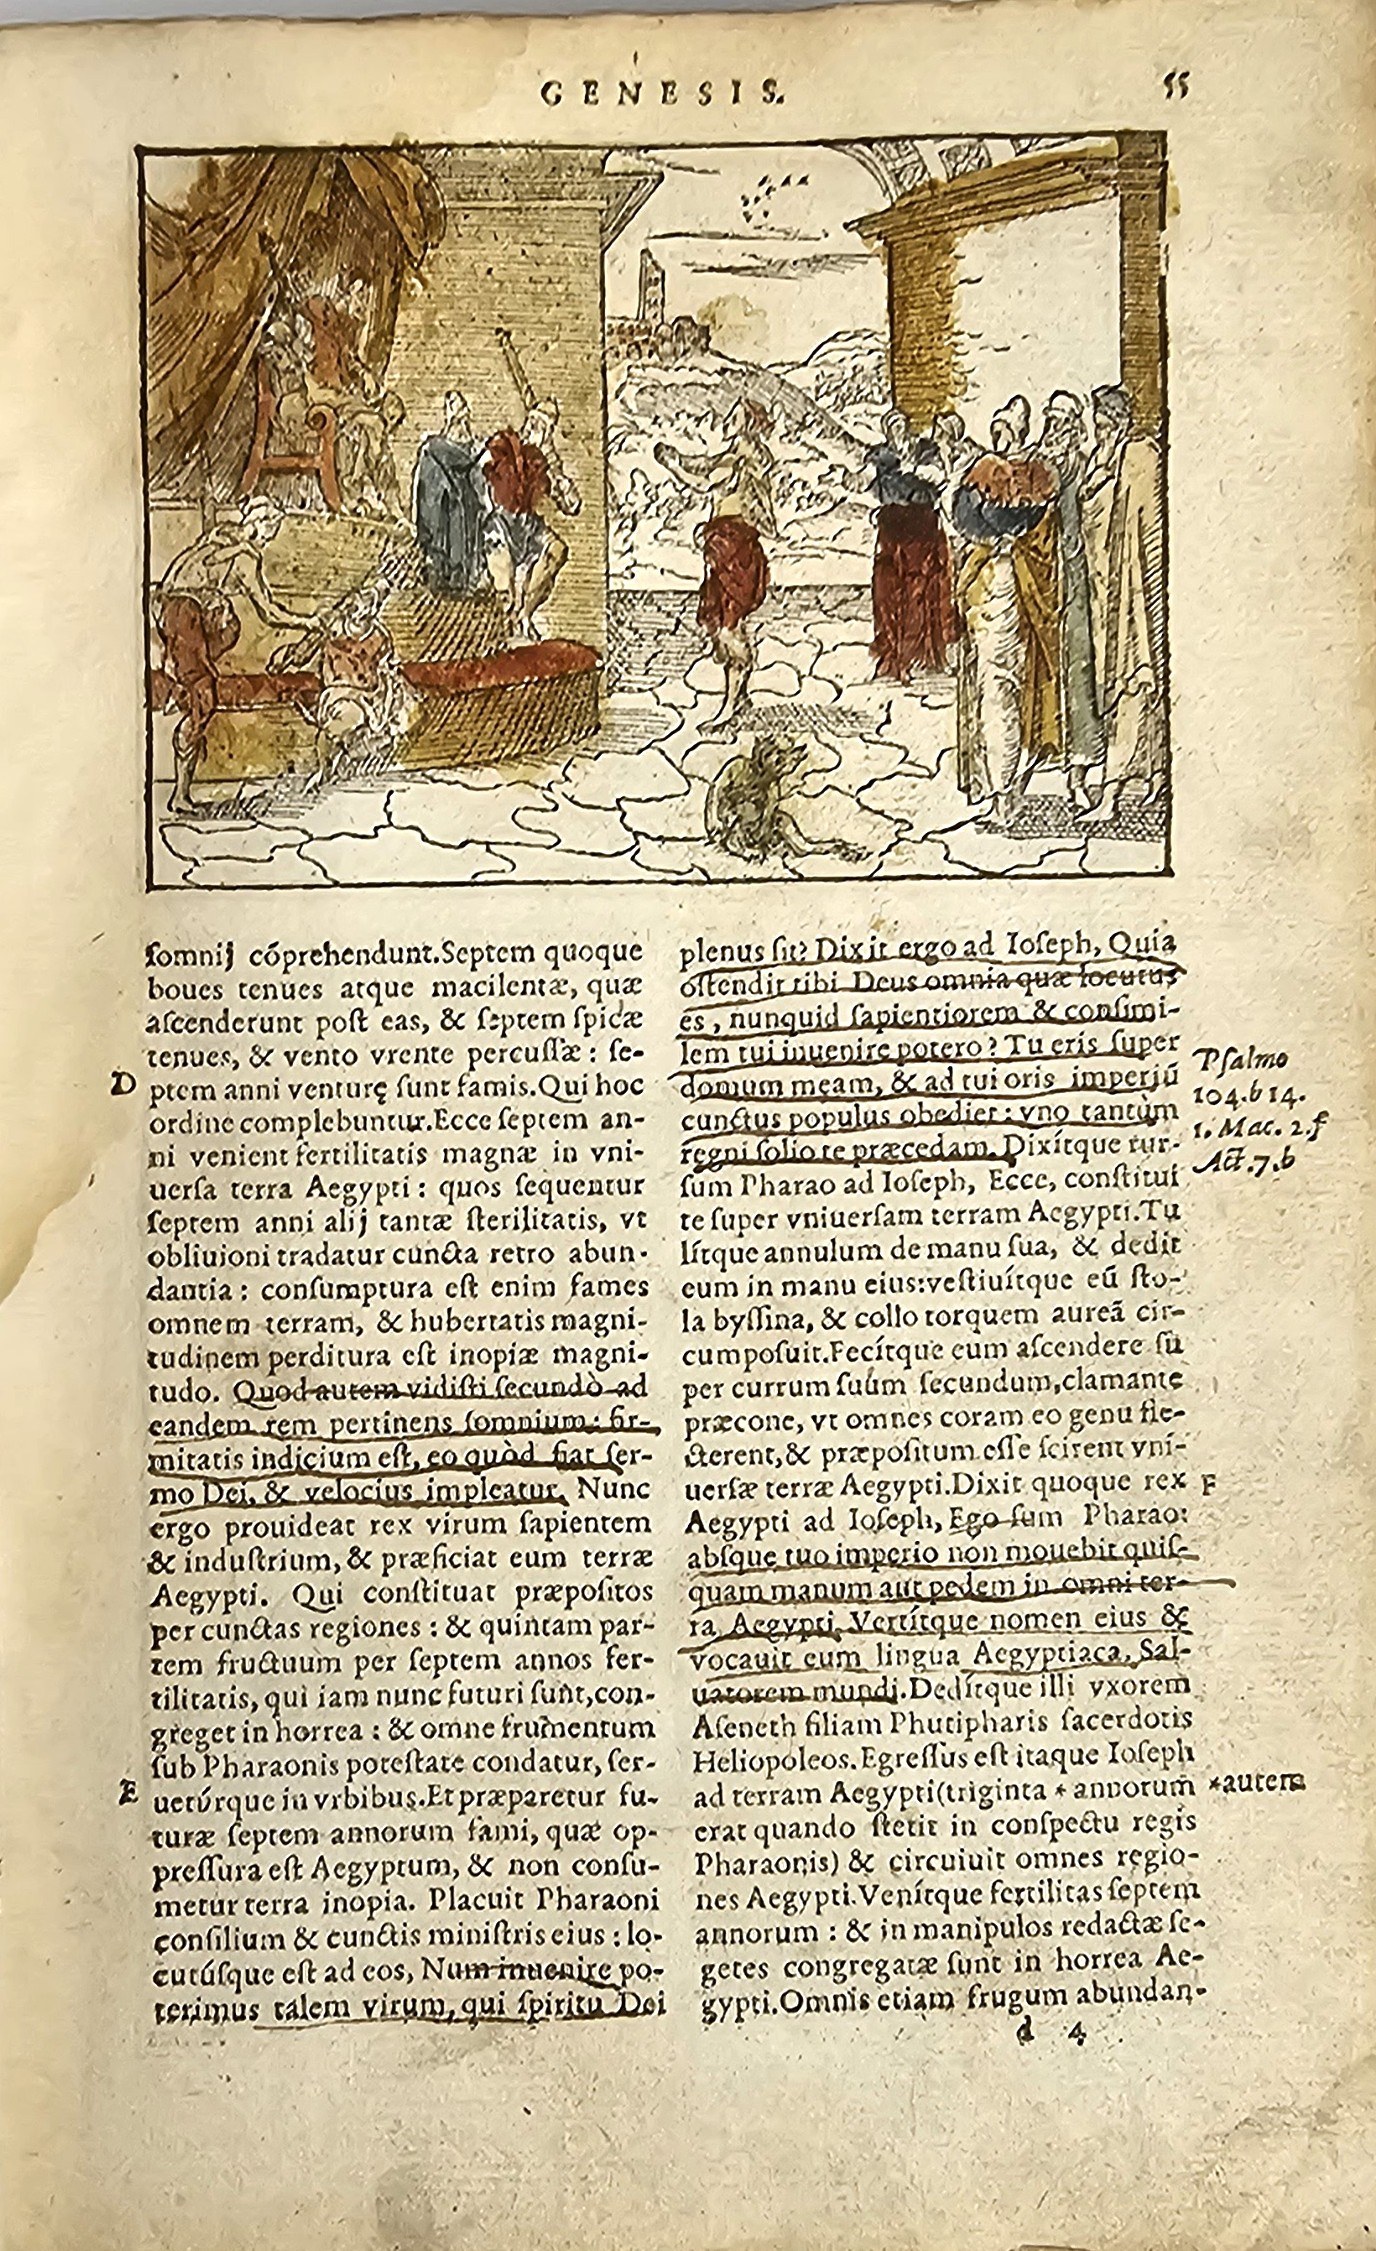 GENESIS.
55
somnij cóprehendunt. Septem quoque
boues tenues atque macilentæ, quæ
ascenderunt post eas, & septem spicæ
tenues, & vento vrente percussæ: se-
D
ptem anni venturę sunt famis. Qui hoc
ordine complebuntur. Ecce septem an-
ni venient fertilitatis magnæ in vni-
uersa terra Aegypti: quos sequentur
septem anni alij tantæ sterilitatis, vt
obliuioni tradatur cuncta retro abun-
dantia: consumptura est enim fames
omnem terram, & hubertatis magni-
tudinem perditura est inopiæ magni-
tudo. Quod autem vidisti secundò ad
eandem rem pertinens somnium: fir-
mitatis indicium est, eo quòd fiat ser-
mo Dei, & velocius impleatur. Nunc
ergo prouideat rex virum sapientem
& industrium, & præficiat eum terræ
Aegypti. Qui constituat præpositos
per cunctas regiones: & quintam par-
tem fructuum per septem annos fer-
tilitatis, qui iam nunc futuri sunt, con-
greget in horrea: & omne frumentum
sub Pharaonis potestate condatur, ser-
E
uetúrque in vrbibus. Et præparetur fu-
turæ septem annorum fami, quæ op-
pressura est Aegyptum, & non consu-
metur terra inopia. Placuit Pharaoni
consilium & cunctis ministris eius: lo-
cutúsque est ad eos, Num inuenire po-
terimus talem virum, qui spiritu Dei
plenus sit? Dixit ergo ad Ioseph, Quia
ostendit tibi Deus omnia quæ locutus
es, nunquid sapientiorem & consimi-
lem tui inuenire potero? Tu eris super
domum meam, & ad tui oris imperiũ
cunctus populus obediet: vno tantùm
regni solio te præcedam. Dixítque rur-
sum Pharao ad Ioseph, Ecce, constitui
te super vniuersam terram Aegypti. Tu
lítque annulum de manu sua, & dedit
eum in manu eius: vestiuítque eũ sto-
la byssina, & collo torquem aureã cir-
cumposuit. Fecítque eum ascendere sũ
per currum suum secundum, clamante
præcone, vt omnes coram eo genu fle-
cterent, & præpositum esse scirent vni-
uersæ terræ Aegypti. Dixit quoque rex
F
Aegypti ad Ioseph, Ego sum Pharao:
absque tuo imperio non mouebit quis-
quam manum aut pedem in omni ter-
ra Aegypti. Vertítque nomen eius &
vocauit eum lingua Aegyptiaca, Sal-
uatorem mundi. Dedítque illi vxorem
Aseneth filiam Phutipharis sacerdotis
Heliopoleos. Egressus est itaque Ioseph
ad terram Aegypti (triginta * annorum
erat quando stetit in conspectu regis
Pharaonis) & circuiuit omnes regio-
nes Aegypti. Venítque fertilitas septem
annorum: & in manipulos redactæ se-
getes congregatæ sunt in horrea Ae-
gypti. Omnis etiam frugum abundan-
d 4
Psalmo
104.b 14.
1. Mac. 2.f
Act. 7.b
*autem